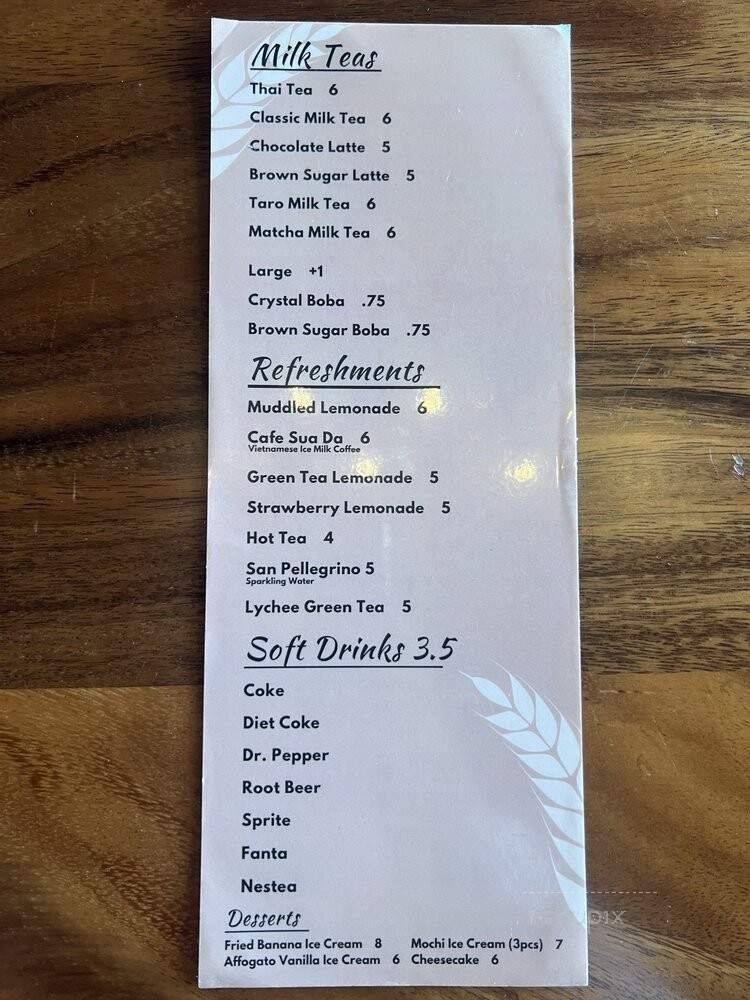 Milk Teas
Thai Tea 6
Classic Milk Tea 6
Chocolate Latte 5
Brown Sugar Latte 5
Taro Milk Tea 6
Matcha Milk Tea 6
Large +1
Crystal Boba .75
Brown Sugar Boba .75
Refreshments
Muddled Lemonade 6
Cafe Sua Da 6
Vietnamese Ice Milk Coffee
Green Tea Lemonade 5
Strawberry Lemonade 5
Hot Tea 4
San Pellegrino 5
Sparkling Water
Lychee Green Tea 5
Soft Drinks 3.5
Coke
Diet Coke
Dr. Pepper
Root Beer
Sprite
Fanta
Nestea
Desserts
Fried Banana Ice Cream 8 Mochi Ice Cream (3pcs) 7
Affogato Vanilla Ice Cream 6 Cheesecake 6